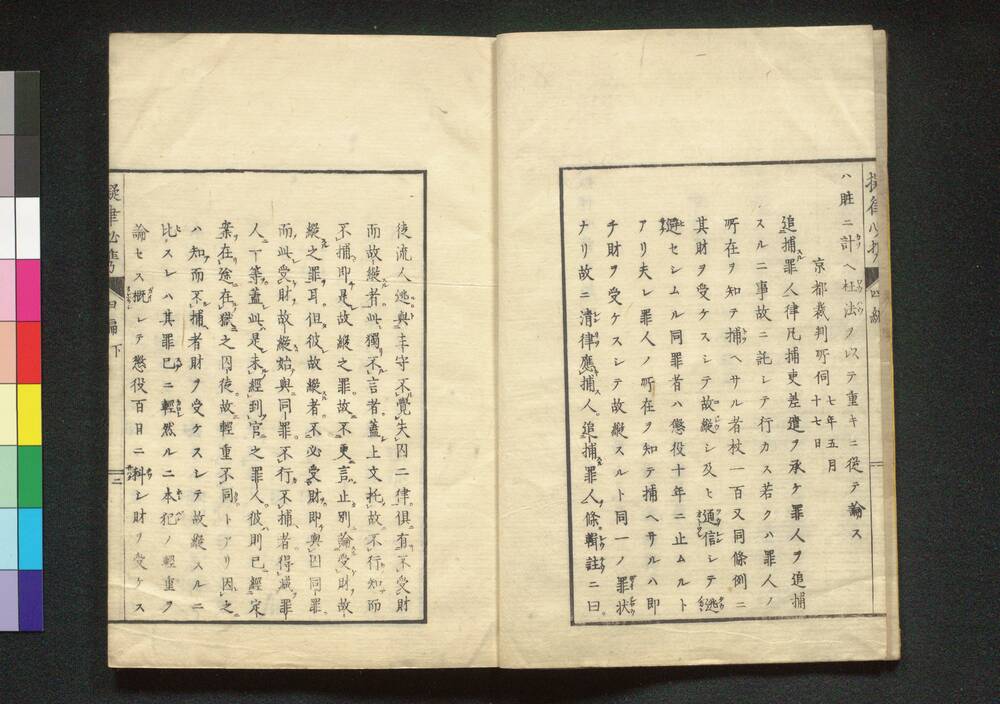 ハ賍ニ計ヘ枉法ヲ以テ重キニ從テ論ス
京都裁判所伺 七年五月十七日
追捕罪人律凡捕吏差遣ヲ承ケ罪人ヲ追捕
スルニ事故ニ託シテ行カス若クハ罪人ノ
所在ヲ知テ捕ヘサル者杖一百又同條例ニ
其財ヲ受ケスシテ故縱シ及ヒ通信シテ逃
避セシムル同罪者ハ懲役十年ニ止ムルト
アリ夫レ罪人ノ所在ヲ知テ捕ヘサルハ即
チ財ヲ受ケスシテ故縱スルト同一ノ罪状
ナリ故ニ清律應捕人追捕罪人條輯註ニ曰
徒流人逃與主守不覺失囚二律俱有不受財
而故縱者此獨不言者蓋上文托故不行知而
不捕即是故縱之罪故不更言止別論受財故
縱之罪耳但彼故縱者不必受財即與囚同罪
而此受財故縱始與同罪不行不捕者得減罪
人一等蓋此是未經到官之罪人彼則已經定
案在途在獄之囚徒故輕重不同トアリ因之
ハ知而不捕者財ヲ受ケスシテ故縱スルニ
比スレハ其罪已ニ輕然ルニ本犯ノ輕重ヲ
論セス概シテ懲役百日ニ科シ財ヲ受ケス
擬律必携 四編下
二